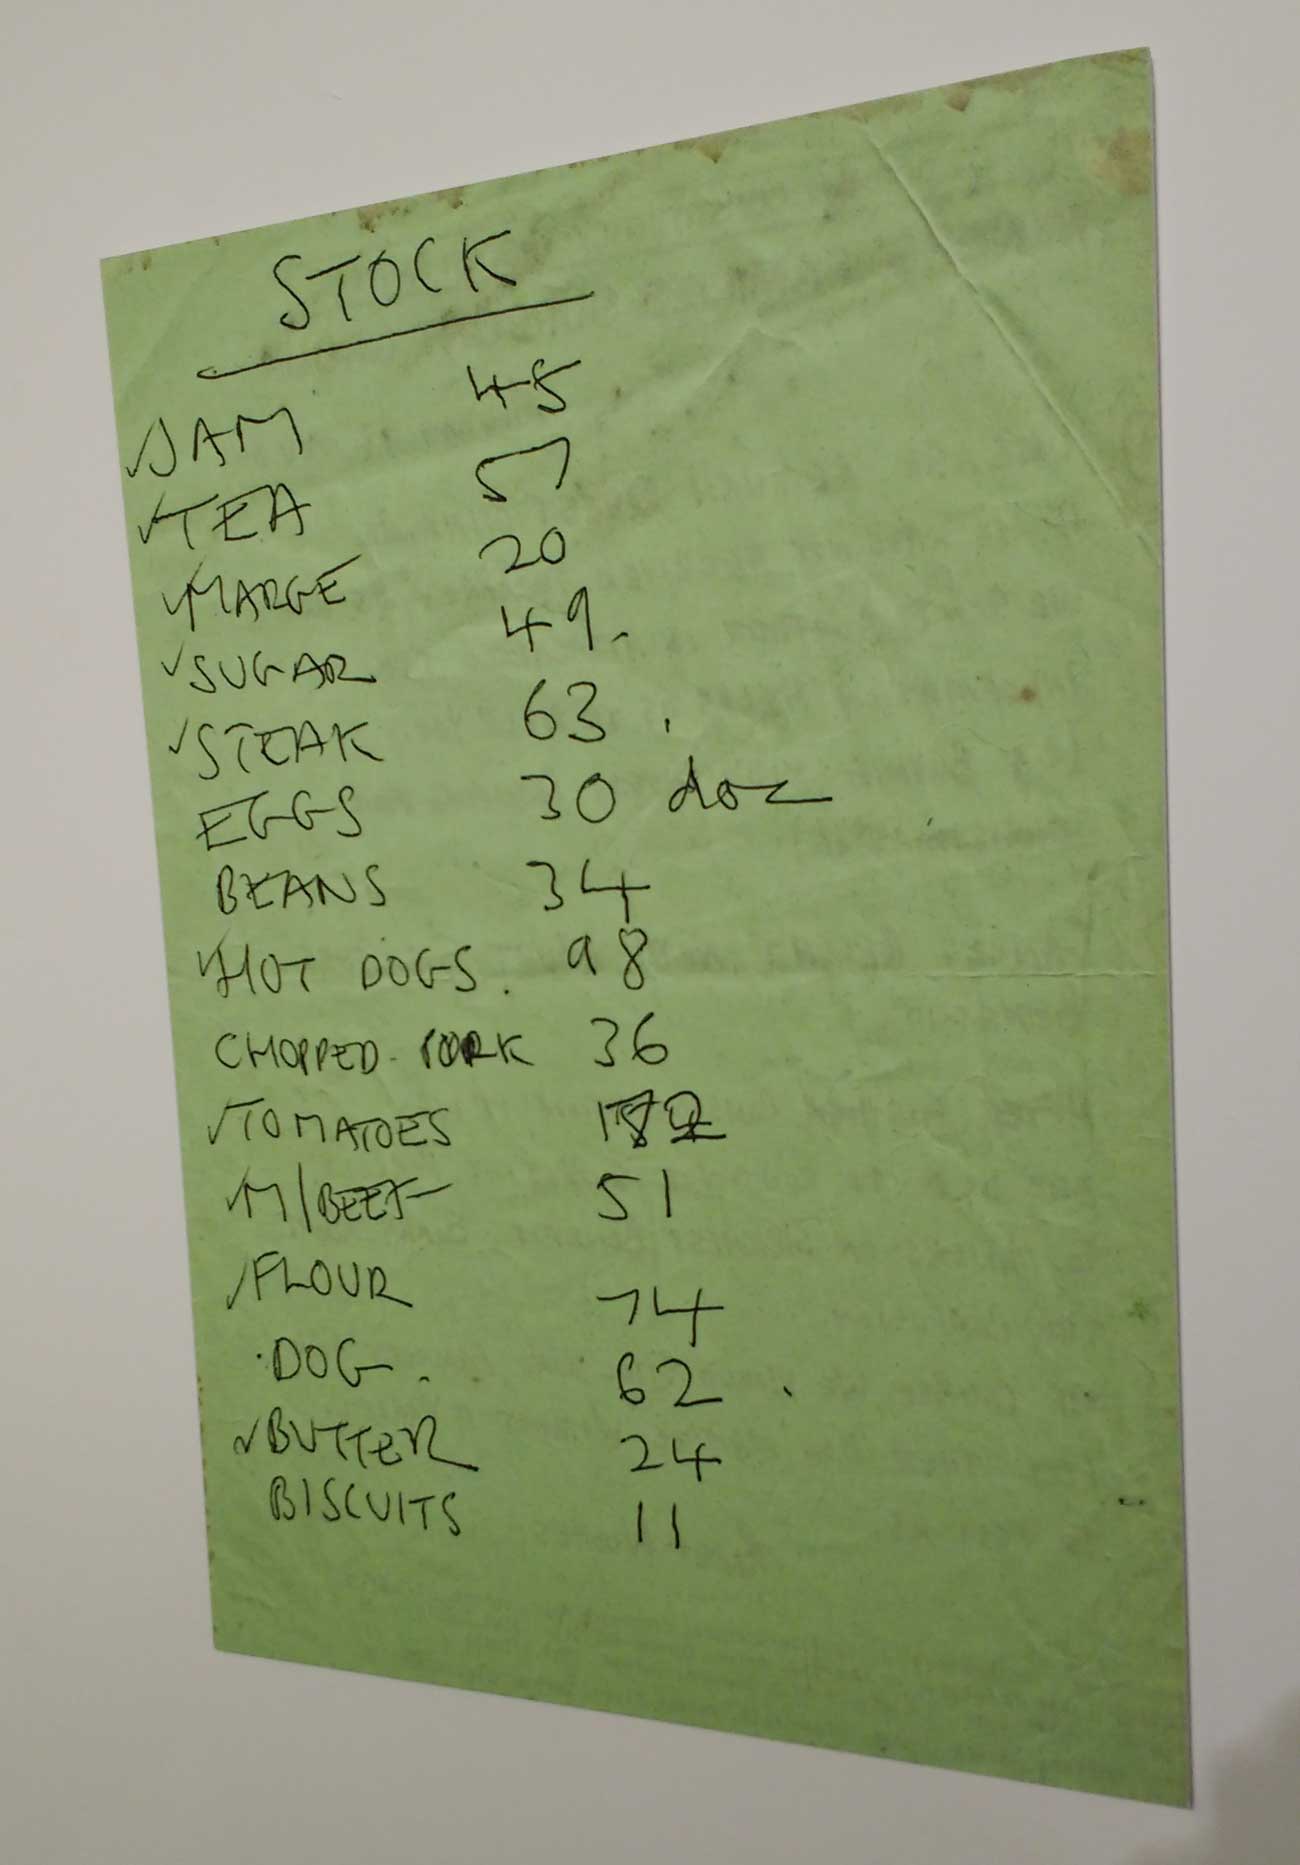 STOCK
✓JAM 45
✓TEA 57
✓MARGE 20
✓SUGAR 49.
✓STEAK 63.
EGGS 30 doz
BEANS 34
✓HOT DOGS. 98
CHOPPED PORK 36
✓TOMATOES
✓M/BEEF 51
✓FLOUR 74
DOG. 62.
✓BUTTER 24
BISCUITS 11